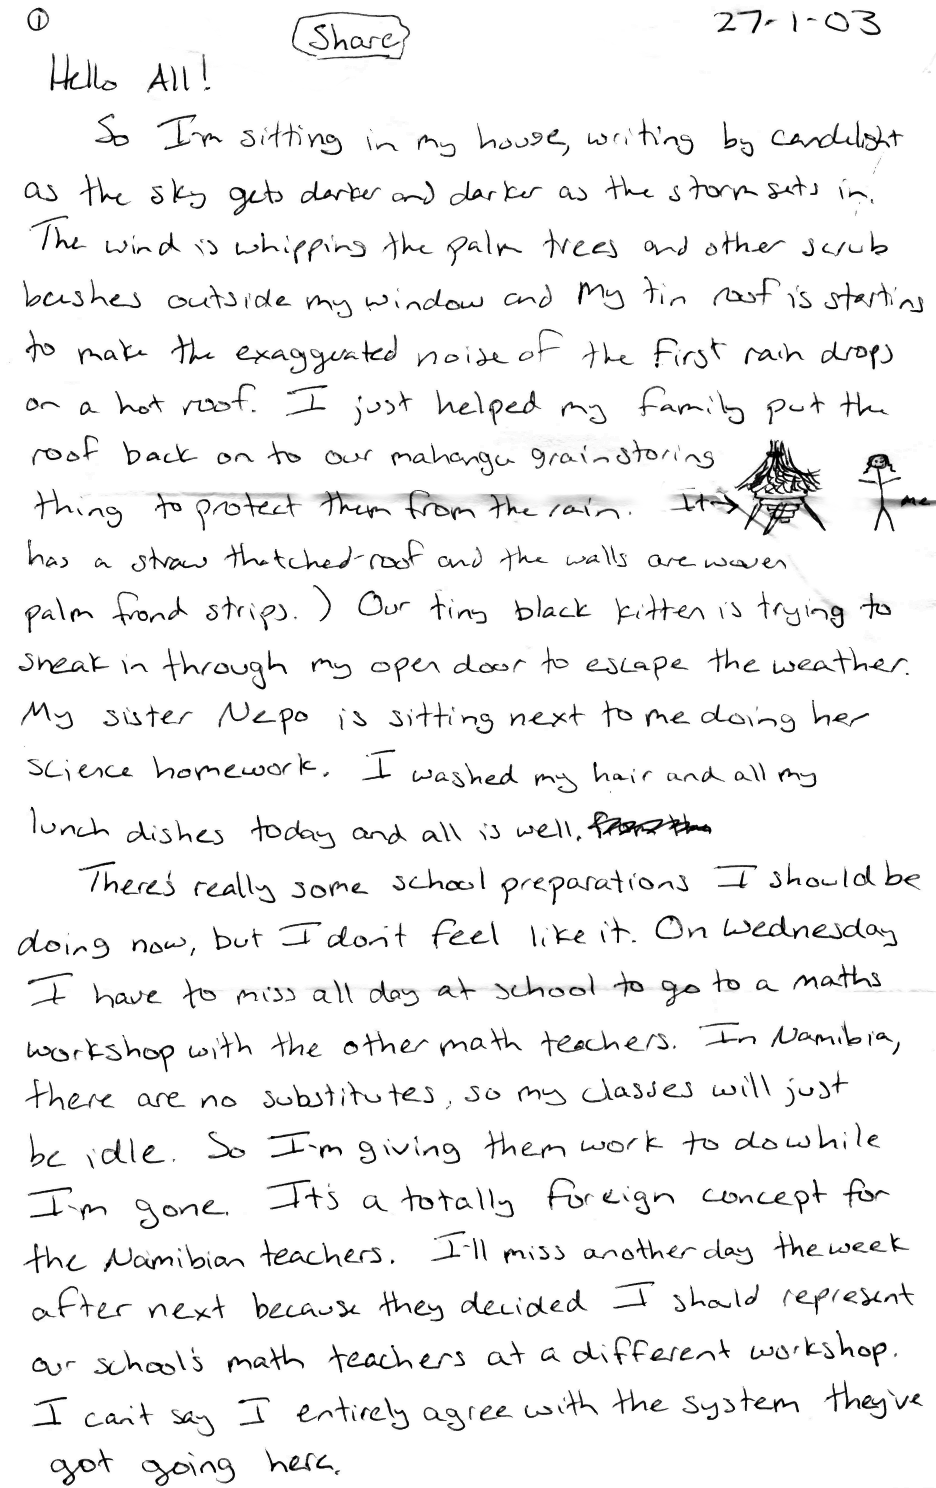 ①
Share
27-1-03
Hello All!
So I'm sitting in my house, writing by candlelight
as the sky gets darker and darker as the storm sets in.
The wind is whipping the palm trees and other scrub
bushes outside my window and my tin roof is starting
to make the exaggerated noise of the first rain drops
on a hot roof. I just helped my family put the
roof back on to our mahangu grainstoring
thing to protect them from the rain. It→ me
has a straw thatched-roof and the walls are woven
palm frond strips.) Our tiny black kitten is trying to
sneak in through my open door to escape the weather.
My sister Nepo is sitting next to me doing her
science homework. I washed my hair and all my
lunch dishes today and all is well.
There's really some school preparations I should be
doing now, but I don't feel like it. On Wednesday
I have to miss all day at school to go to a maths
workshop with the other math teachers. In Namibia,
there are no substitutes, so my classes will just
be idle. So I'm giving them work to do while
I'm gone. It's a totally foreign concept for
the Namibian teachers. I'll miss another day the week
after next because they decided I should represent
our school's math teachers at a different workshop.
I can't say I entirely agree with the system they've
got going here.